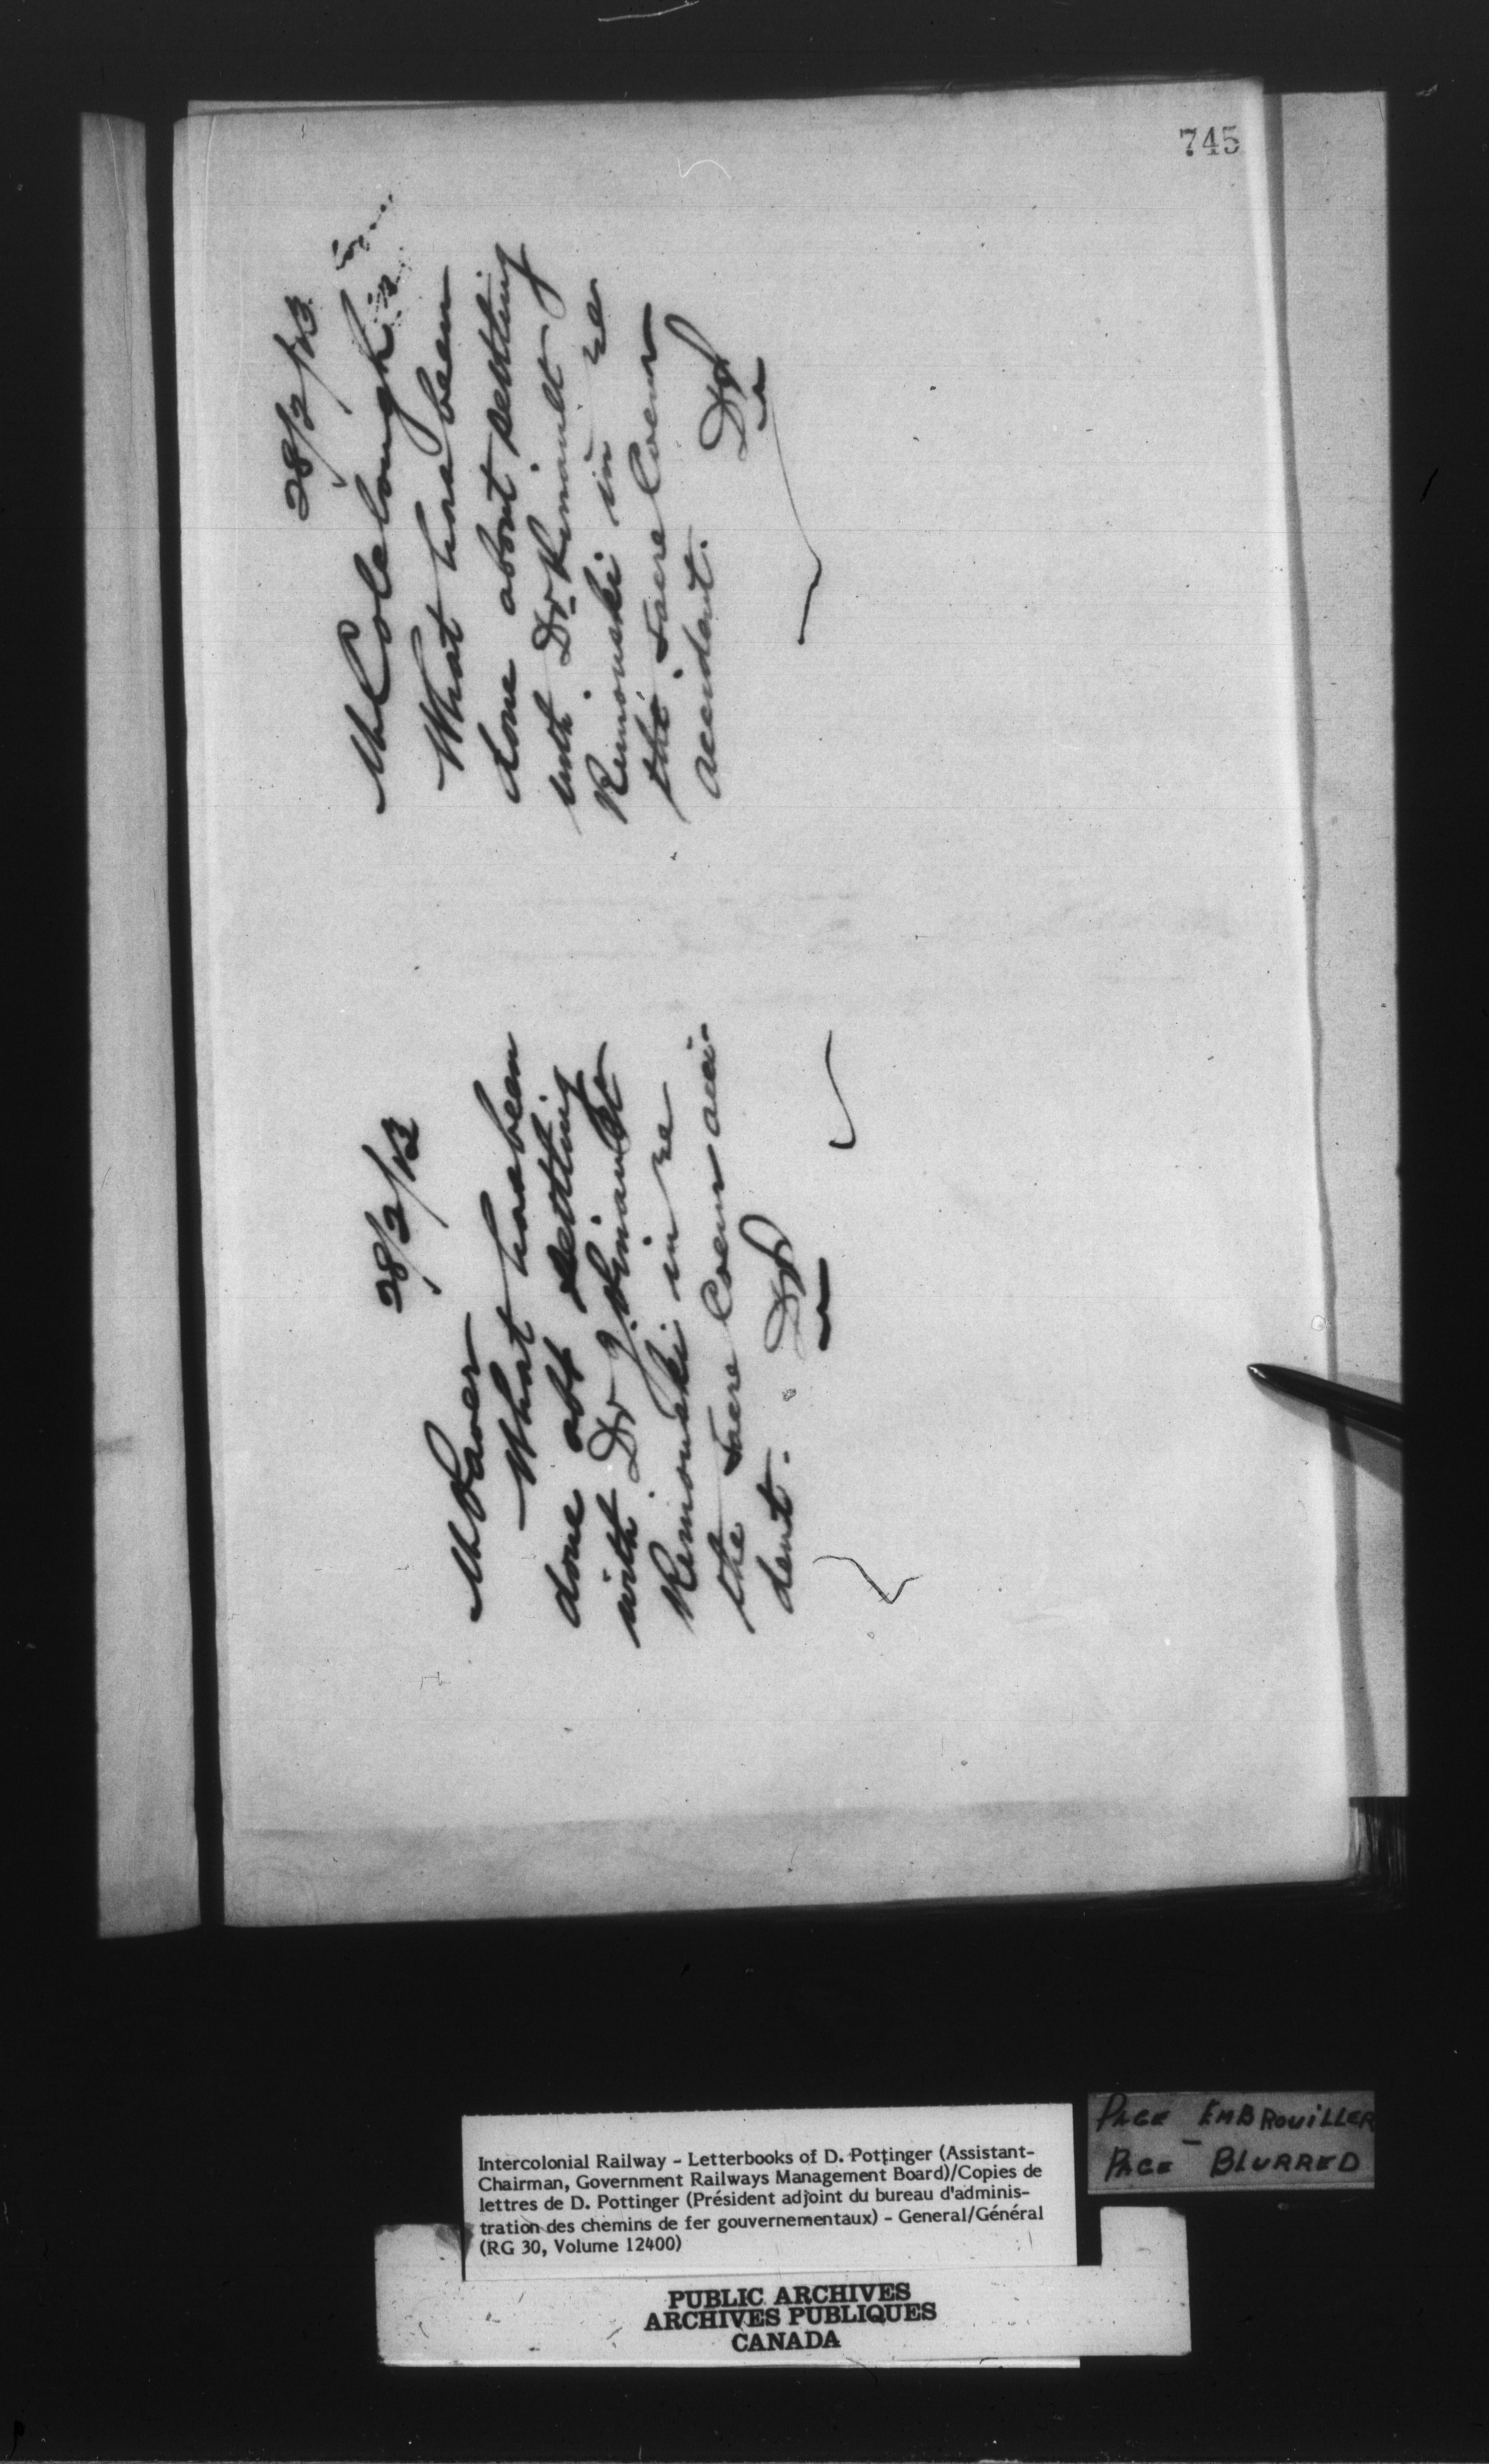 745
28/2/13
Mr Colclough
What has been
done about settling
with Dr
Rimouski in re
the Sacre Coeur
accident.
DP
28/2/13
Mr Paver
What has been
done abt settling
with Dr
Rimouski in re
the Sacre Coeur acci-
dent.
DP
Intercolonial Railway - Letterbooks of D. Pottinger (Assistant-
Chairman, Government Railways Management Board)/Copies de
lettres de D. Pottinger (Président adjoint du bureau d'adminis-
tration des chemins de fer gouvernementaux) - General/Général
(RG 30, Volume 12400)
PAGE EMBROUILLER
PAGE - BLURRED
PUBLIC ARCHIVES
ARCHIVES PUBLIQUES
CANADA